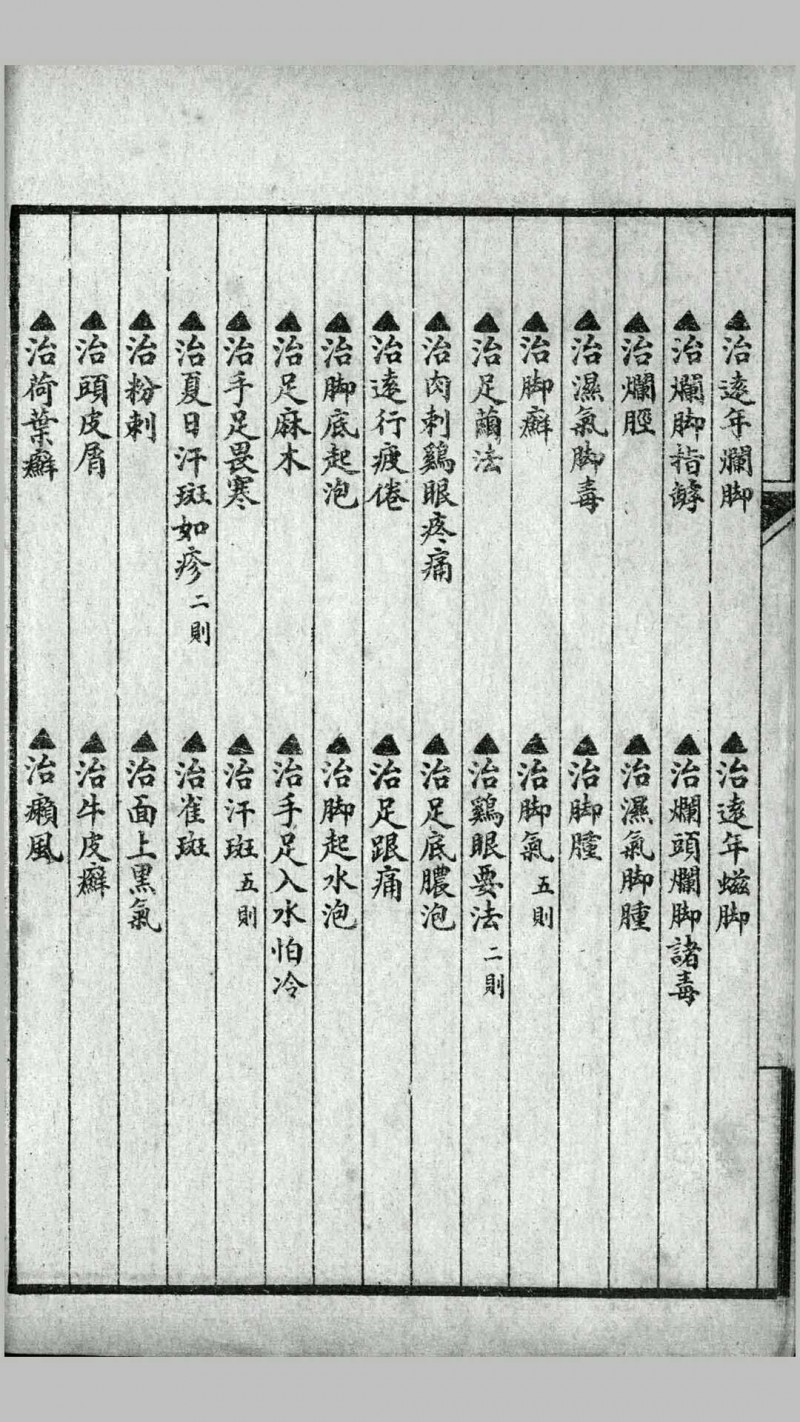 ▲治遠年爛脚
▲治遠年蟮脚
▲治爛脚丫
▲治爛頭爛脚諸毒
▲治爛脛
▲治濕氣脚腫
▲治濕氣脚毒
▲治脚腫
▲治脚癬
▲治脚氣 五則
▲治足繭法
▲治鷄眼要法 二則
▲治肉刺鷄眼疼痛
▲治足底膿泡
▲治遠行疲倦
▲治足跟痛
▲治脚底起泡
▲治脚起水泡
▲治足麻木
▲治手足入水怕冷
▲治手足畏寒
▲治汗斑 五則
▲治夏日汗斑如疹 二則
▲治雀斑
▲治粉刺
▲治面上黑氣
▲治頭皮屑
▲治牛皮癬
▲治荷葉癬
▲治癩風